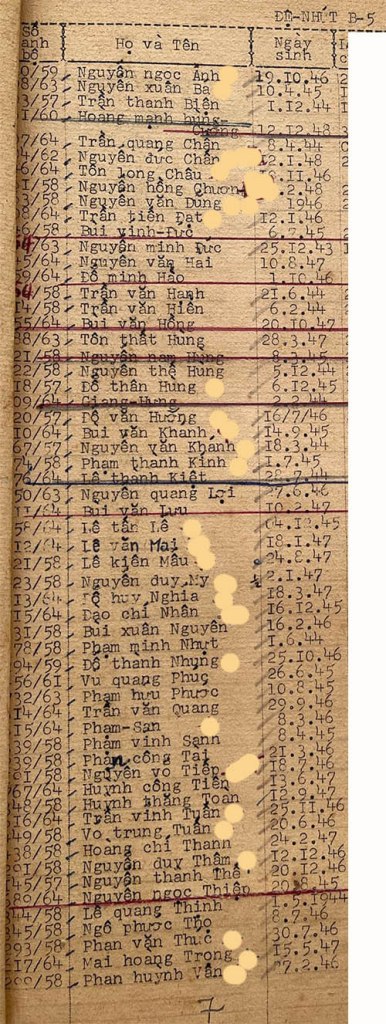 ĐỆ-NHỨT B-5
Số Họ và Tên Ngày
anh sinh
bộ
0/59 Nguyễn ngọc Ánh 19.10.46
8/63 Nguyễn xuân Ba 10.4.45
3/57 Trần thanh Biên 1.12.44
1/60 Hoàng mạnh hùng-
Chương 12.12.48
7/64 Trần quang Chân 8.4.44
/62 Nguyễn đức Chấn .1.48
/64 Tôn long Châu .11.46
1/58 Nguyễn hồng Chương .2.48
/58 Nguyễn văn Dũng 1946
8/64 Trần tiến Đạt 12.1.46
/58 Bùi vinh-Đức 6.7.45
/63 Nguyễn minh Đức 25.12.43
/58 Nguyễn văn Hai 10.8.47
9/64 Đỗ minh Hảo 1.10.46
/58 Trần văn Hạnh 21.6.44
4/58 Trần văn Hiền 6.2.44
55/64 Bùi văn Hồng 20.10.47
38/63 Tôn thất Hùng 28.3.47
21/58 Nguyễn nam Hùng 8.3.45
22/58 Nguyễn thế Hùng 5.12.44
18/57 Đỗ thần Hưng 6.12.45
09/64 Giang-Hưng 2.2.44
20/57 Độ văn Hương 16/7/46
10/64 Bùi văn Khanh 14.9.45
67/57 Nguyễn văn Khánh 18.3.44
/58 Phạm thanh Kính 1.7.45
/64 Lê thanh Kiệt
50/63 Nguyễn quang Lợi 27.6.46
11/64 Bùi văn Lưu 10.2.47
58/64 Lê tấn Lê 04.12.45
12/64 Lê văn Mai 18.1.47
21/58 Lê kiến Mậu 24.8.47
23/58 Nguyễn duy My 2.1.47
3/64 huy Nghĩa 18.3.47
15/64 Đạo chí Nhân 16.12.45
31/58 Bùi xuân Nguyên 16.2.46
78/58 Phạm minh Nhựt 1.6.44
94/59 Đỗ thanh Nhung 25.10.46
56/61 Vũ quang Phúc 26.6.45
32/63 Phạm hữu Phước 10.8.45
14/64 Trần văn Quang 29.9.46
15/64 Phạm-San 8.3.46
39/58 Phạm vinh Sanh 8.4.45
/58 Phan công Tài 21.3.46
91/58 Nguyễn võ Tiếp 13.6.47
67/64 Huỳnh công Tiến 12.9.47
48/58 Huỳnh thăng Toàn 25.11.46
16/64 Trần vinh Tuấn 20.6.46
49/58 Võ trung Tuấn 24.2.47
38/58 Hoàng chí Thanh
/58 Nguyễn duy Thâm 12.12.46
45/57 Nguyễn thanh Thế 20.10.46
80/64 Nguyễn ngọc Thiệp 20.8.45
44/58 Lê quang Thịnh 1.5.1944
45/58 Ngô phước Thọ 8.7.46
293/58 Phan văn Thức 30.7.46
17/64 Mai hoàng Trọng 15.5.47
/58 Phan huỳnh Vân 7.2.46
7